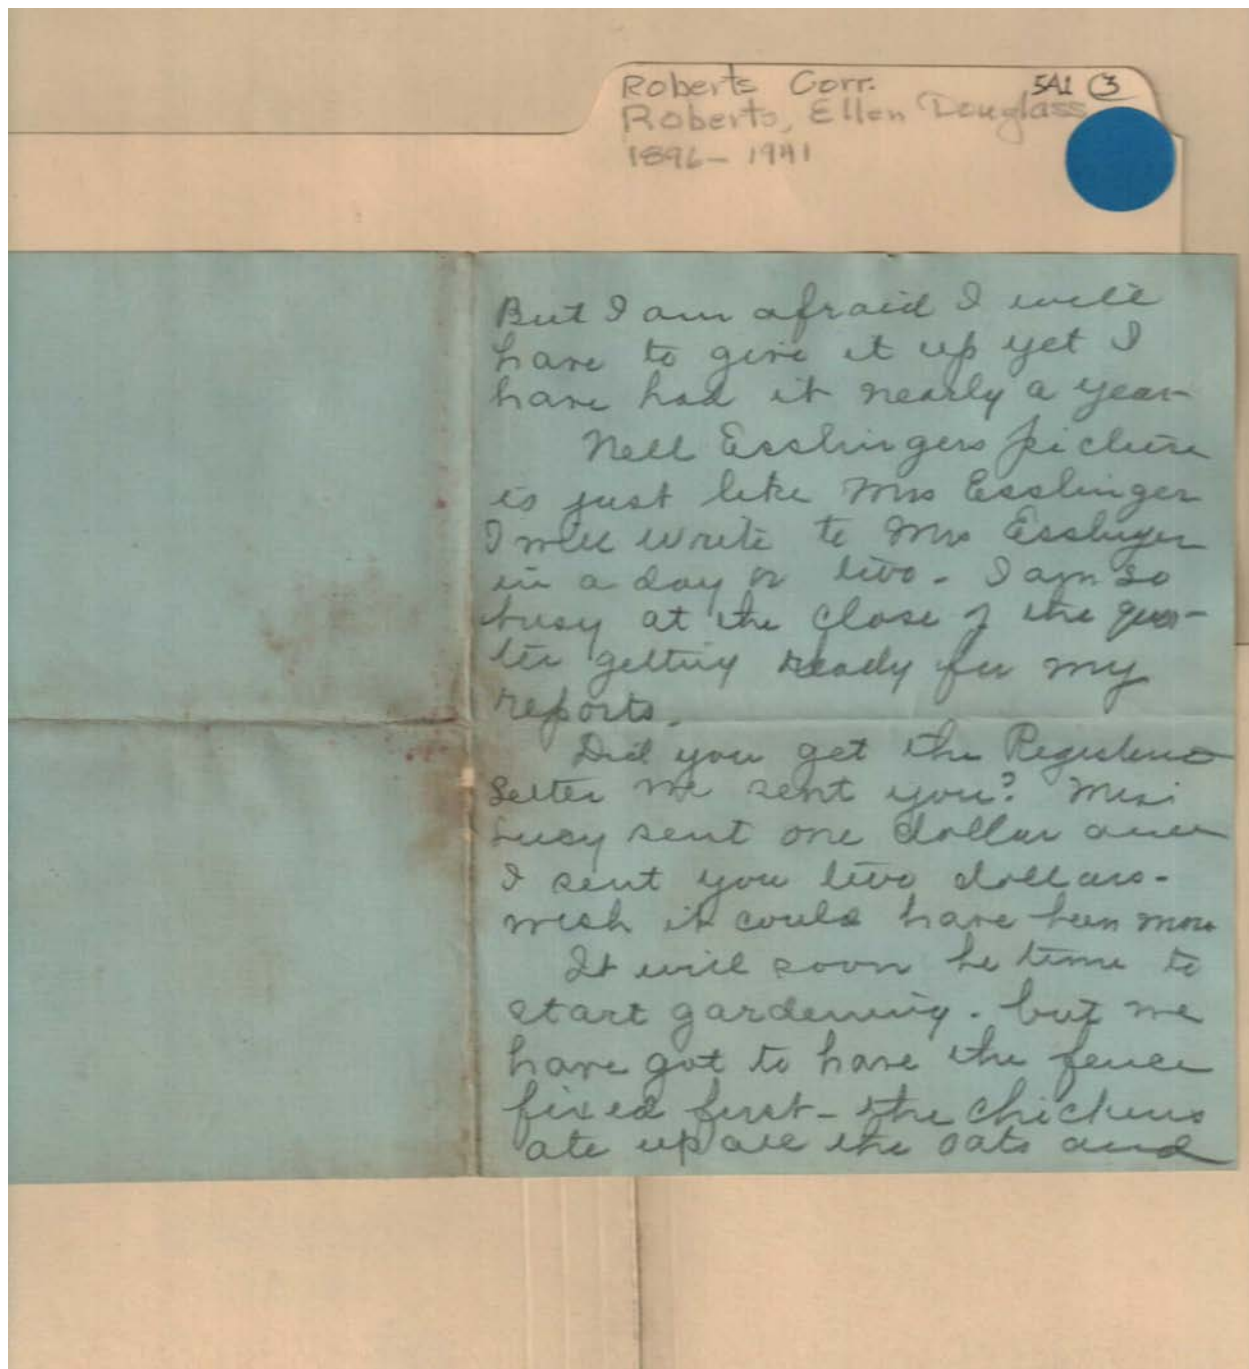 Roberts Corr. 5A1 3
Roberts, Ellen Douglass
1896-1941
But I am afraid I will
have to give it up yet I
have had it nearly a year
Nell Esslingers picture
is just like Mrs Esslinger
I will write to Mrs Esslinger
in a day or two. I am so
busy at the close of the quar-
ter getting ready for my
reports.
Did you get the Registered
Letter we sent you? Miss
Lucy sent one dollar and
I sent you two dollars-
wish it could have been more
It will soon be time to
start gardening. but we
have got to have the fence
fixed first- the chickens
ate up all the oats and